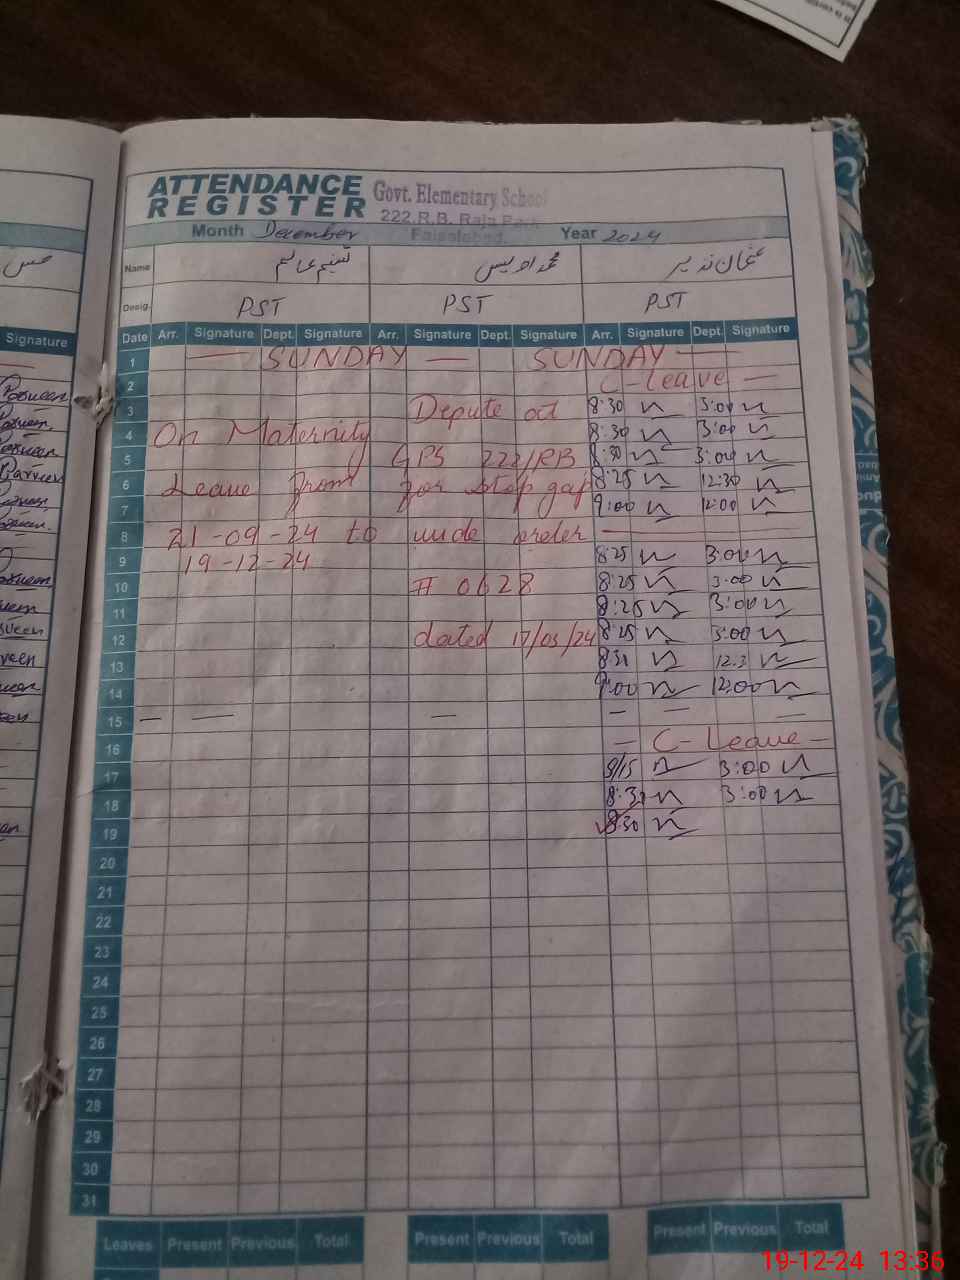 ATTENDANCE REGISTER
Govt. Elementary School
222.R.B. Raja Park
Faisalabad.
Month December Year 2024
Name محمد اویس عثمان نذیر
Desig. PST PST PST
Signature
Date Arr. Signature Dept. Signature Arr. Signature Dept. Signature Arr. Signature Dept. Signature
1 — SUNDAY — SUNDAY —
2 C-Leave —
3 Depute at 8:30 3:00
4 On Maternity 8:30 3:00
5 GPS 222/RB 8:30 3:00
6 Leave from for stop gap 8:25 12:30
7 9:00 12:00
8 21-09-24 to unde order
9 19-12-24 8:25 3:00
10 # 0628 8:25 3:00
11 8:25 3:00
12 dated 17/03/24 8:25 3:00
13 8:31 12:3
14 9:00 12:00
15 — — — — — —
16 — C-Leave —
17 9/15 3:00
18 8:30 3:00
19 8:30
20
21
22
23
24
25
26
27
28
29
30
31
Leaves Present Previous Total Present Previous Total Present Previous Total
19-12-24 13:36